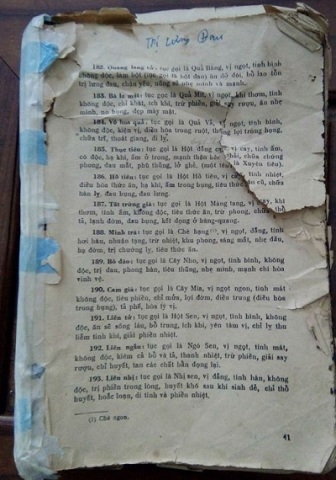 Trị lưng Đau
182. Quang lang tử: tục gọi là Quả Búng, vị ngọt, tính bình
không độc, làm bột (tục gọi là bột đao) ăn đỡ đói, bổ hao tổn
trị lưng đau, chân yếu, uống sẽ nhẹ mình và mạnh.
183. Ba la mật: tục gọi là Quả Mít, vị ngọt, khí thơm, tính
không độc, chỉ khát, ích khí, trừ phiền, giải say rượu, ăn nhẹ
mình, no bụng, đẹp mày mặt.
184. Vô hoa quả: tục gọi là Quả Vả, vị ngọt, tính bình,
không độc, kiện vị, điều hòa trung ruột, thông lợi trừng hung,
chữa trĩ, thoát giang, đi lỵ.
185. Thục tiêu: tục gọi là Hột
có độc, hạ khí, ấm ở trung, mạnh
phong, đau mắt, phù thũng, lỗ ghẻ, (một tên là Xuyên tiêu).
186. Hồ tiêu: tục gọi là Hột Hồ tiêu, vị c
điều hòa thức ăn, hạ khí, ấm trong bụng, tiêu thức ăn cũ, chữa
hàn lỵ, đau bụng, đau lưng.
187. Tất trừng già: tục gọi là Hột Màng tang, vị
thơm, tính ấm, không độc, tiêu thức ăn, trừ phong, chữa thổ
tả, lạnh dạ, đau bụng, kết đọng ở bàng-quang.
188. Minh trà: tục gọi là Chè bạng(1), vị ngọt, đắng, tính
hơi hàn, nhuận tạng, trừ nhiệt, khu phong, sáng mắt, nhẹ đầu,
hạ đờm, trị chướng lỵ, tiêu thức ăn.
189. Bồ đào: tục gọi là Cây Nho, vị ngọt, tính bình, không
độc, trị đau, phong hàn, tiêu thũng, nhẹ mình, mạnh chí hòa
vinh vệ.
190. Cam giá: tục gọi là Cây Mía, vị ngọt ngon, tính mát
không độc, tiêu phiền, chỉ mửa, lợi đờm, điều trung (điều hòa
trung bụng), tả phế, hòa tỳ vị.
191. Liên tử: tục gọi là Hột Sen, vị ngọt, tính bình, không
độc, ăn sẽ sống lâu, bổ trung, ích khí, yên tâm vị, chỉ lỵ thu
liễm tinh khí, giải phiền nhiệt.
192. Liên ngẫu: tục gọi là Ngó Sen, vị ngọt, tính mát
không độc, kiêm cả bổ và tả, thanh nhiệt, trừ phiền, giải say
rượu, chỉ huyết, tan các chất hãn đọng lại.
193. Liên nhị: tục gọi là Nhị sen, vị đắng, tính hàn, không
độc, trị phiền trung lòng, huyết khô sau khi sinh đẻ, chỉ thổ
huyết, hoắc loạn, di tinh và phiền nhiệt.
(1) Chè ngon.
41